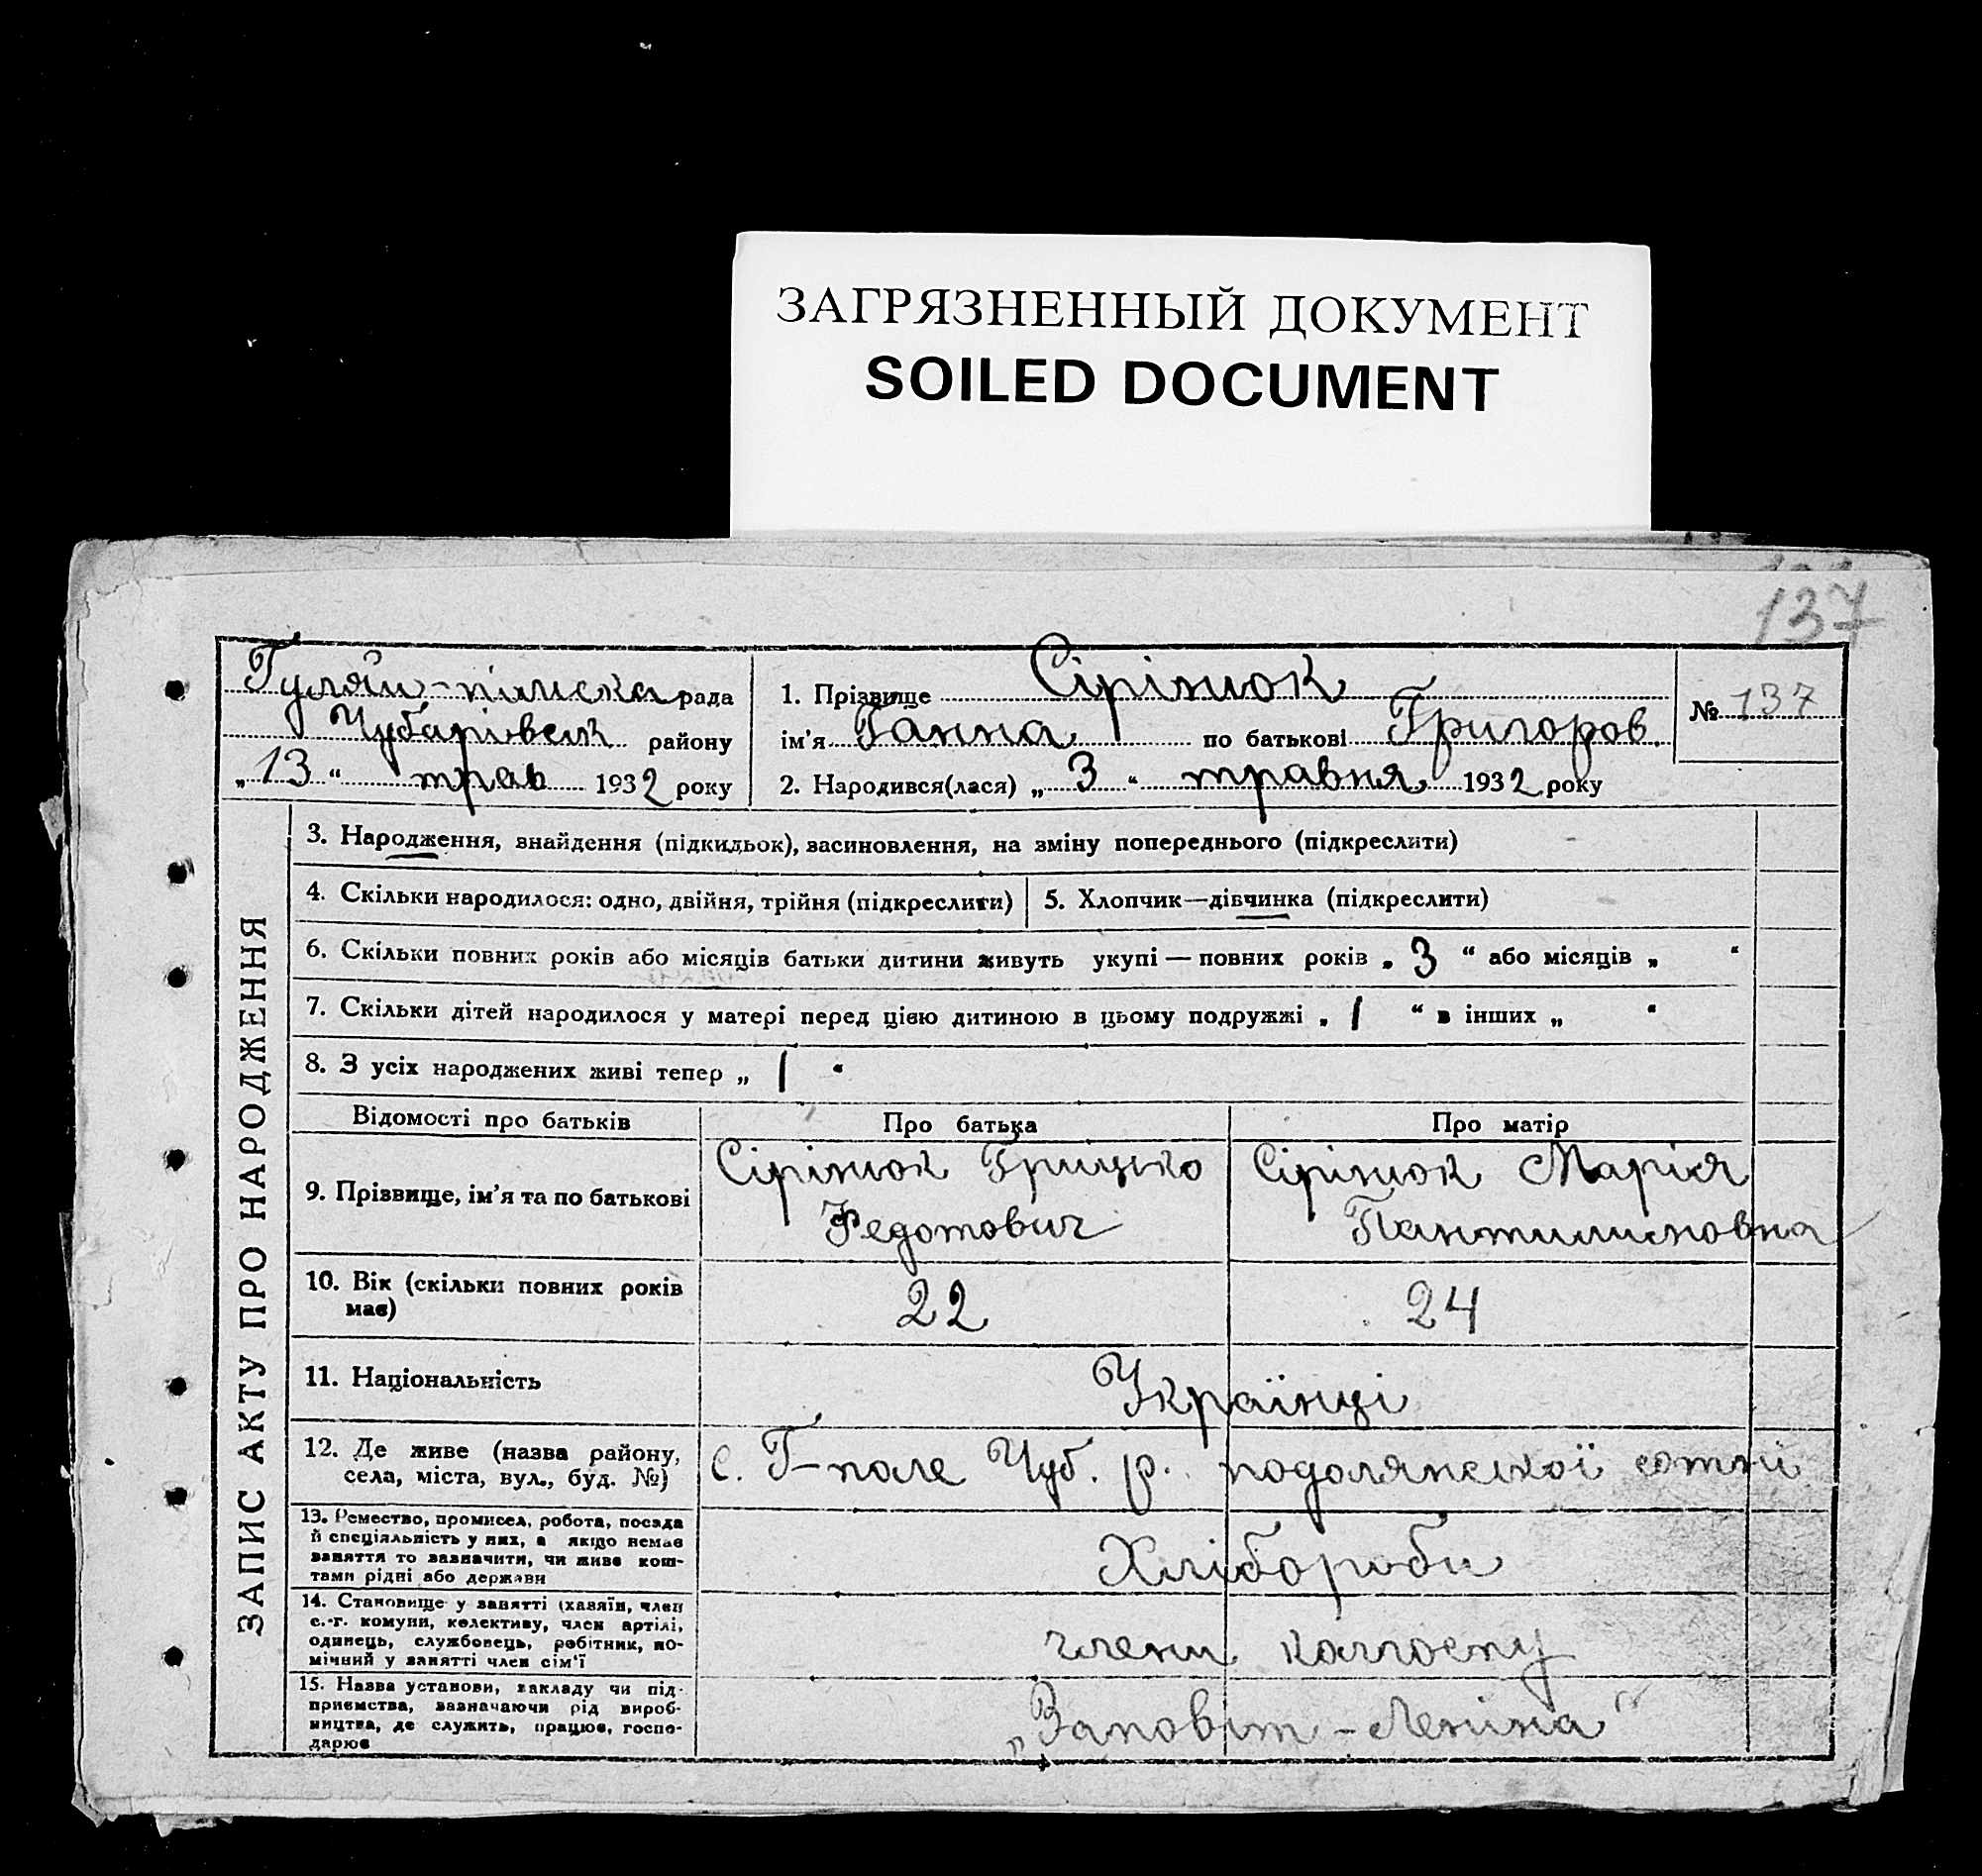 ЗАГРЯЗНЕННЫЙ ДОКУМЕНТ
SOILED DOCUMENT
137
Гуляй-пільска рада
Чубарівськ району
„13“ трав 1932 року
1. Прізвище Сірінюк
ім'я Ганна по батькові Григоров.
2. Народився(лася) „3“ травня 1932 року
№ 137
ЗАПИС АКТУ ПРО НАРОДЖЕННЯ
3. Народження, знайдення (підкидьок), засиновлення, на зміну попереднього (підкреслити)
4. Скільки народилося: одно, двійня, трійня (підкреслити)
5. Хлопчик—дівчинка (підкреслити)
6. Скільки повних років або місяців батьки дитини живуть укупі — повних років „3“ або місяців „ “
7. Скільки дітей народилося у матері перед цією дитиною в цьому подружжі „1“ в інших „ “
8. З усіх народжених живі тепер „1“
Відомості про батьків Про батька Про матір
9. Прізвище, ім'я та по батькові
Сірінюк Грицько
Федотович
Сірінюк Марія
Пантилимовна
10. Вік (скільки повних років
має)
22
24
11. Національність
Українці
12. Де живе (назва району,
села, міста, вул., буд. №)
с. Г-поле Чуб. р. подолянської сотні
13. Ремество, промисел, робота, посада
й спеціяльність у них, а якщо немає
заняття то зазначити, чи живе кош-
тами рідні або держави
Хлібороби
14. Становище у занятті (хазяїн, член
с.-г. комуни, колективу, член артілі,
одинець, службовець, робітник, по-
мічний у занятті член сім'ї
члени колгоспу
15. Назва установи, закладу чи під-
приємства, зазначаючи рід вироб-
ництва, де служить, працює, госпо-
дарює
„Заповіт - Леніна"